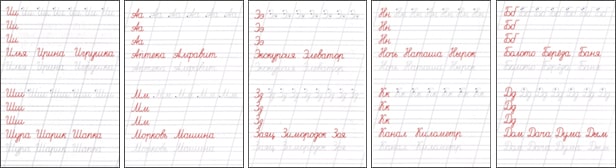 Ии
Ии
Ии
Илья Ирина Игрушка
Шш
Шш
Шш
Шура Шарик Шапка
Аа
Аа
Аа
Аптека Алфавит
Мм
Мм
Мм
Морковь Машина
Ээ
Ээ
Ээ
Экскурсия Элеватор
Зз
Зз
Зз
Заяц Зимородок Зоя
Нн
Нн
Нн
Ночь Наташа Нырок
Кк
Кк
Кк
Канал Километр
Бб
Бб
Бб
Болото Берёза Баня
Дд
Дд
Дд
Дом Дача Дума Дым